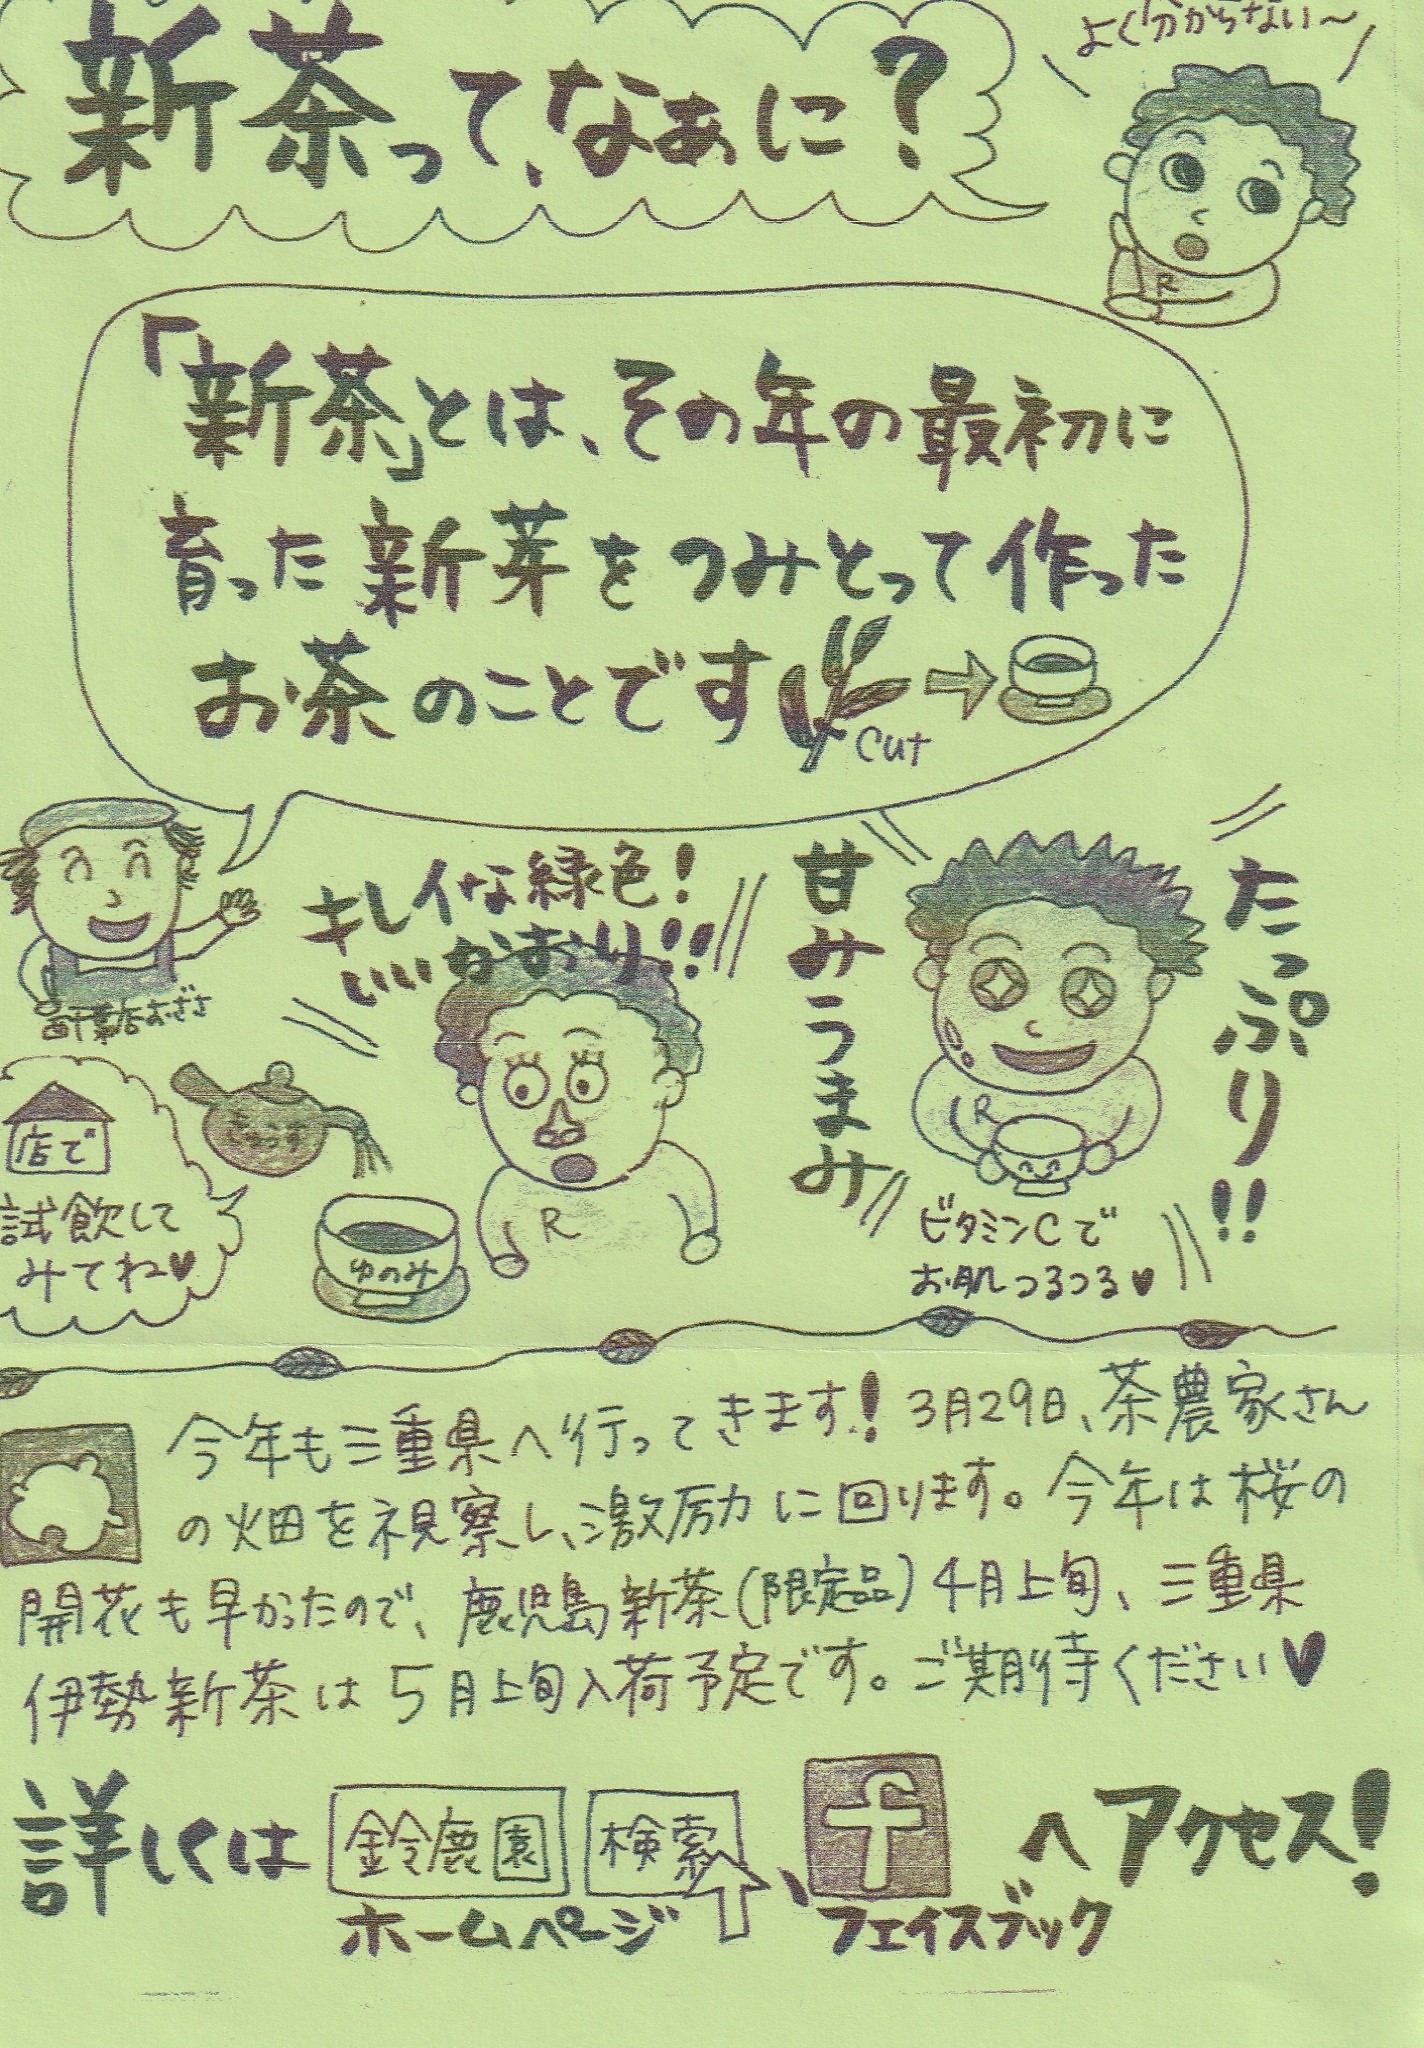 よく分からない〜
新茶って、なぁに？
R
「新茶」とは、その年の最初に
育った新芽をつみとって作った
お茶のことです
cut
キレイな緑色！
いいかおり！！
甘みうまみ
たっぷり！！
きゅうす
店で
試飲して
みてね♥
ゆのみ
R
R
ビタミンCで
お肌つるつる♥
今年も三重県へ行ってきます！3月29日、茶農家さん
の畑を視察し、激励に回ります。今年は桜の
開花も早かったので、鹿児島新茶(限定品)4月上旬、三重県
伊勢新茶は5月上旬入荷予定です。ご期待ください♥
詳しくは 鈴鹿園 検索、f へアクセス！
ホームページ フェイスブック